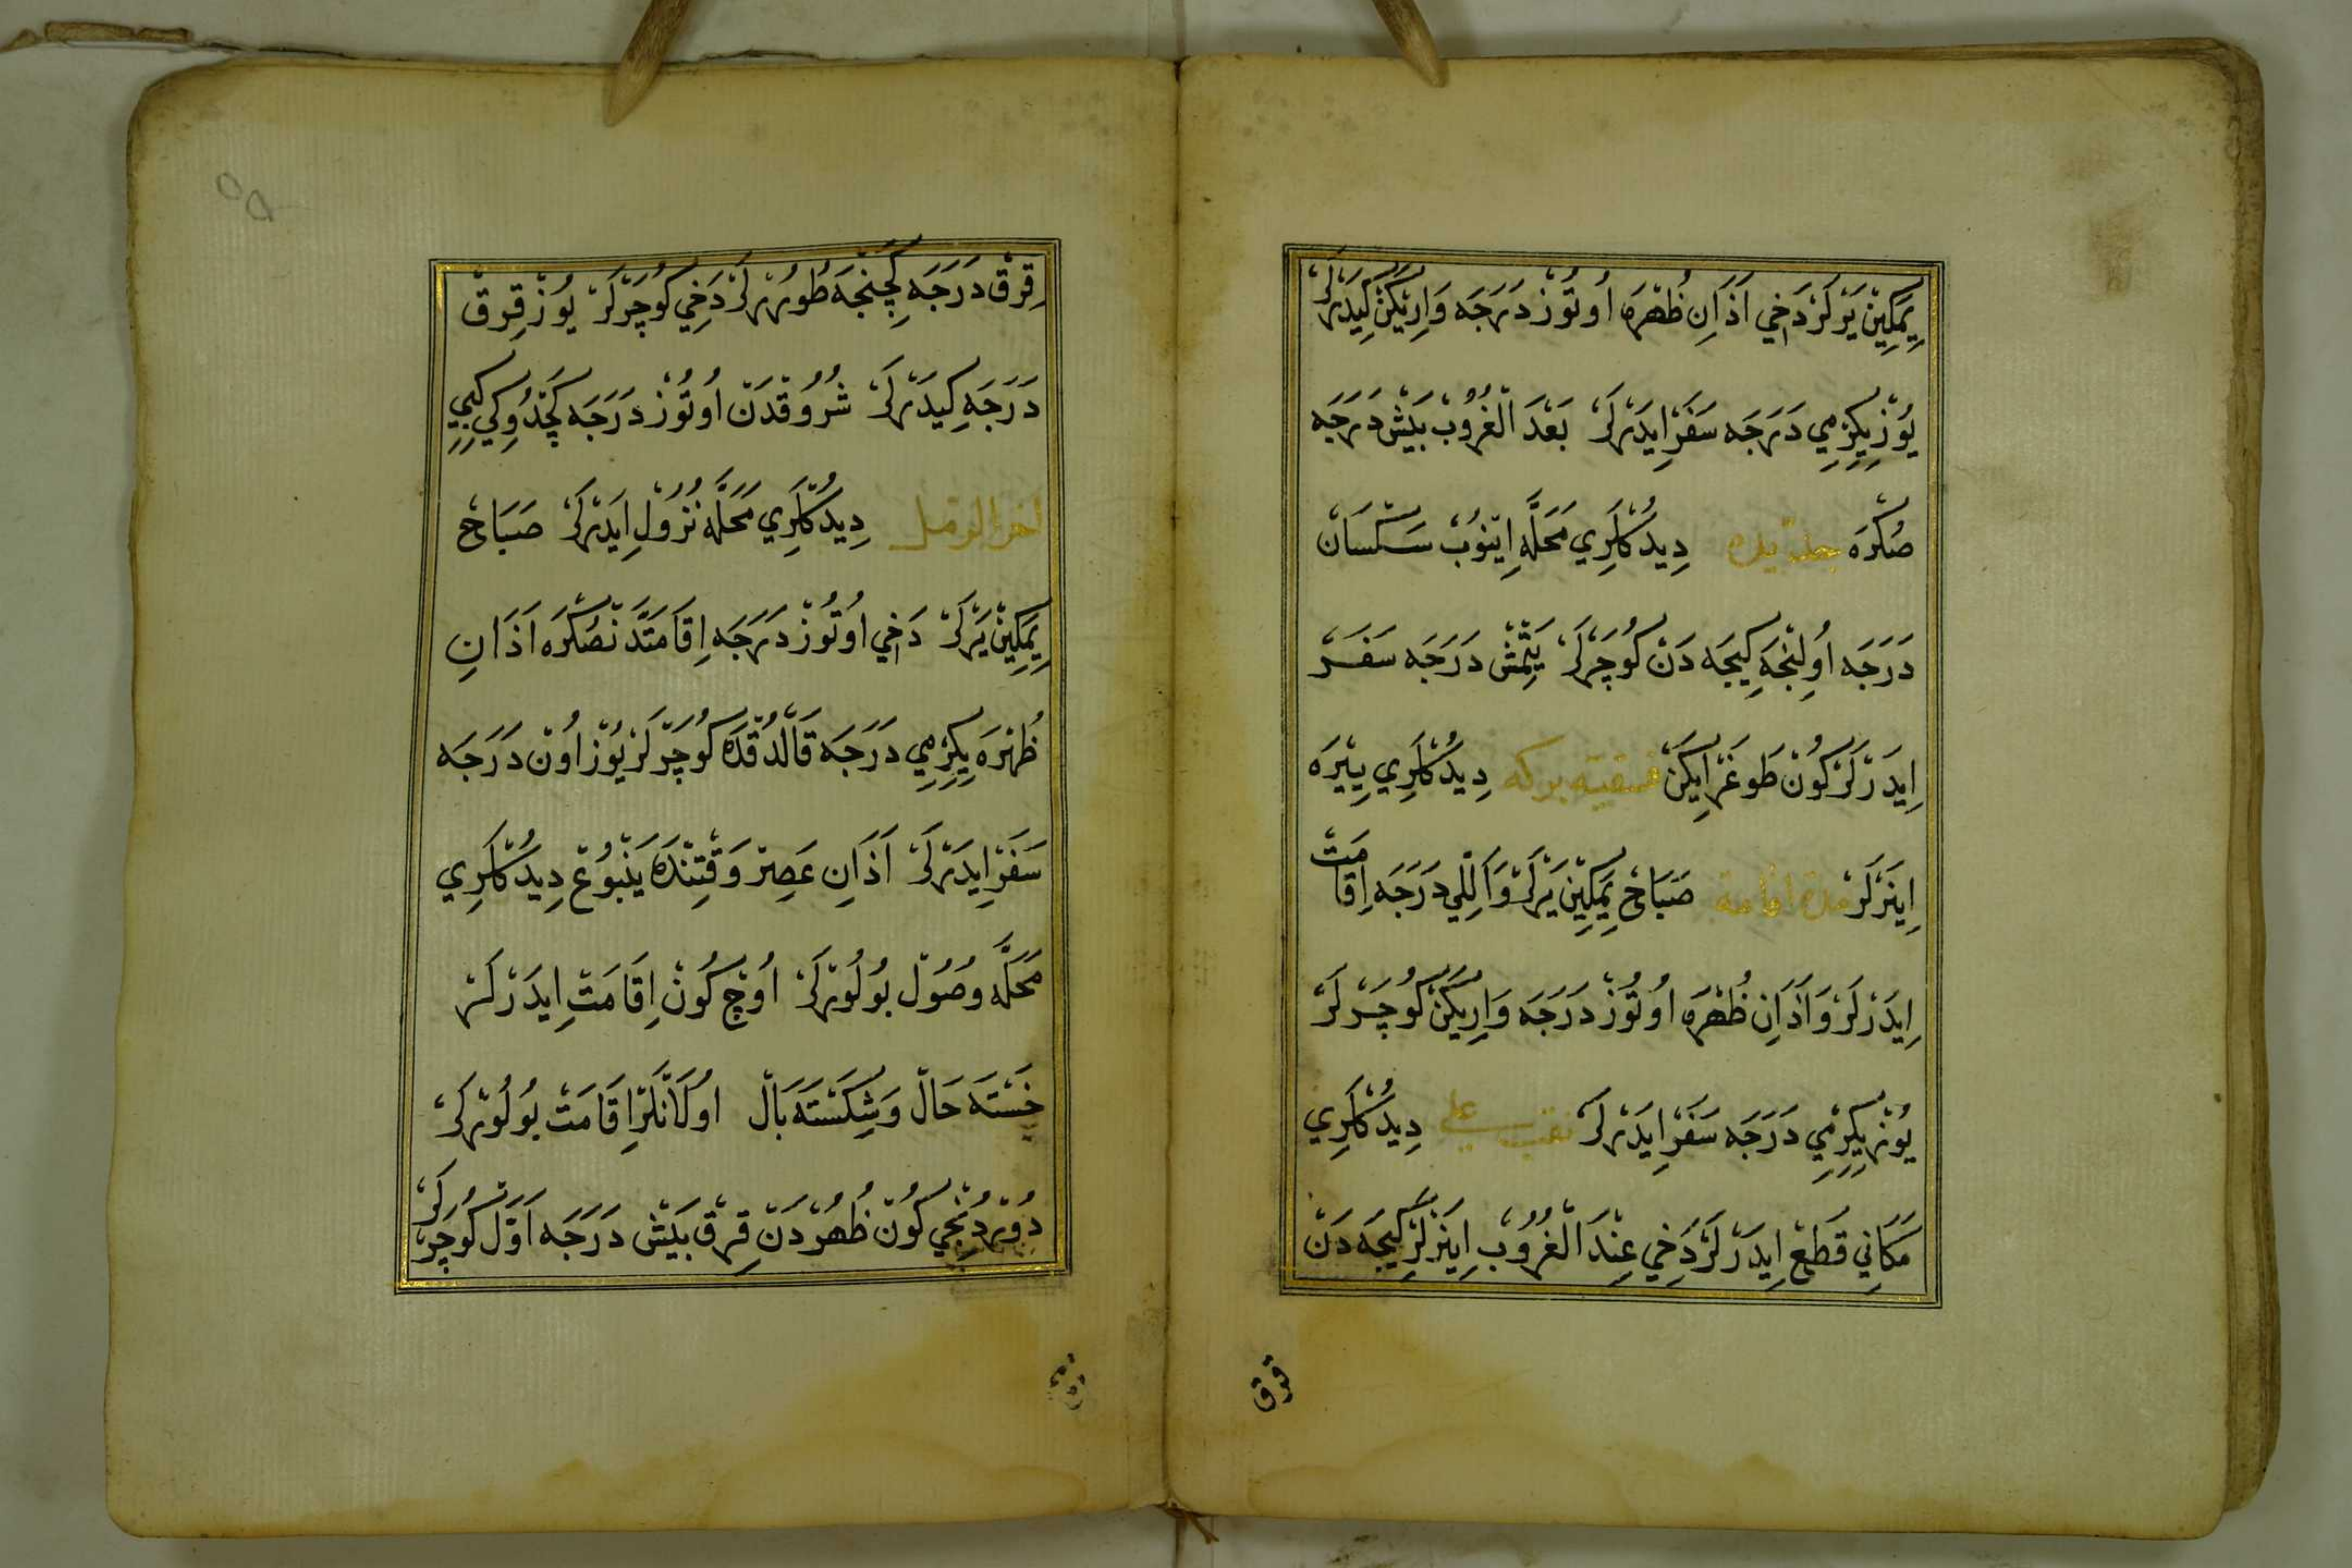 يِمَكِينْ يَرْلَرْ دَخِي اَذَانِ ظُهْرَه اُوتُوزْ دَرَجَه وَارِيكَنْ كِيدَرْلَرْ
يُوزْ يِكِرْمِي دَرَجَه سَفَرْ اِيدَرْلَرْ بَعْدَ الْغُرُوبْ بَيشْ دَرَجَه
صُكْرَه دِيدُكْلَرِي مَحَلَّه اِينُوبْ سَكْسَانْ
دَرَجَه اُولِنْجَه كِيجَه دَنْ كُوچَرْلَرْ يَتْمِشْ دَرَجَه سَفَرْ
اِيدَرْلَرْ كُونْ طُوغَرْ اِيكَنْ بركه دِيدُكْلَرِي يِيْرَه
اِينَرْلَرْ مدة اقامة صَبَاحْ يِمَكِينْ يَرْلَرْ وَاَللِي دَرَجَه اِقَامَتْ
اِيدَرْلَرْ وَاَذَانِ ظُهْرَه اُوتُوزْ دَرَجَه وَارِيكَنْ كُوچَرْلَرْ
يُوزْ يِكِرْمِي دَرَجَه سَفَرْ اِيدَرْلَرْ نقب على دِيدُكْلَرِي
مَكَانِي قَطْعْ اِيدَرْلَرْ دَخِي عِنْدَ الْغُرُوبْ اِينَرْلَرْ كِيجَه دَنْ
قرق
قِرْقْ دَرَجَه كِچِنْجَه طُورُرْلَرْ دَخِي كُوچَرْلَرْ يُوزْ قِرقْ
دَرَجَه كِيدَرْلَرْ شُرُوقْدَنْ اُوتُوزْ دَرَجَه كَچْدُوكِي كِبِي
دِيدُكْلَرِي مَحَلَّه نُزُولْ اِيدَرْلَرْ صَبَاحْ
يِمَكِينْ يَرْلَرْ دَخِي اُوتُوزْ دَرَجَه اِقَامَتْدَنْصُكْرَه اَذَانِ
ظُهْرَه يِكِرْمِي دَرَجَه قَالْدُقْدَه كُوچَرْلَرْ يُوزْ اُونْ دَرَجَه
سَفَرْ اِيدَرْلَرْ اَذَانِ عَصِرْ وَقْتِنْدَه يَنْبُوعْ دِيدُكْلَرِي
مَحَلَّه وُصُولْ بُولُورْلَرْ اُوچْ كُونْ اِقَامَتْ اِيدَرْلَرْ
خَسْتَه حَالْ وَشِكَسْتَه بَالْ اُولَانْلَرْ اِقَامَتْ بُولُورْلَرْ
دُورْدُنْجِي كُونْ ظُهُرْدَنْ قِرْقْ بَيشْ دَرَجَه اَوَّلْ كُوچَرْلَرْ